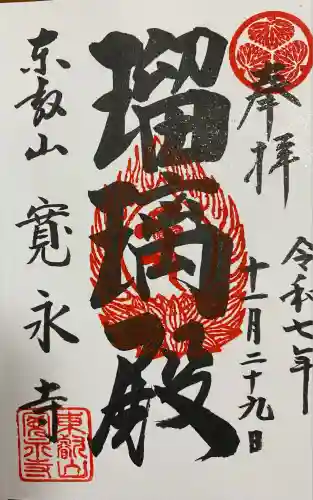 奉拝
令和七年
十一月二十九日
瑠璃殿
東叡山 寛永寺
東叡山
寛永寺